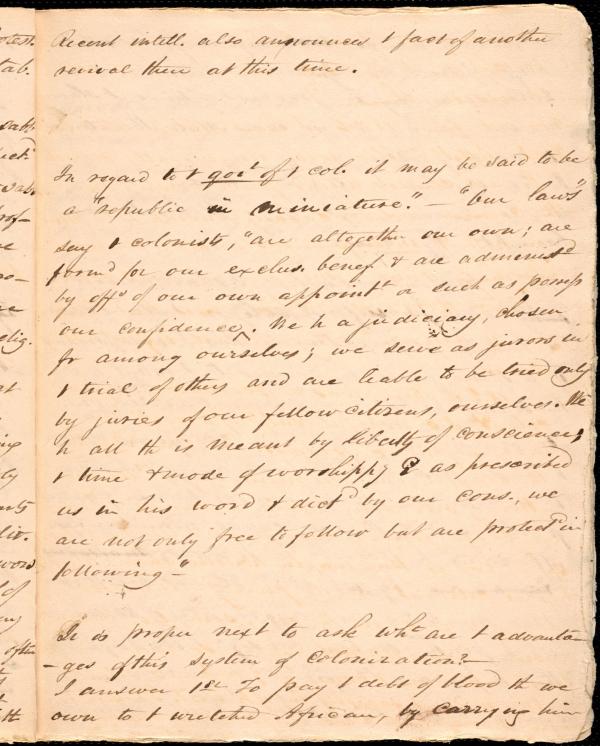 Recent intell. also announces t fact of another
revival there at this time.
In regard to t govt of t col. it may be said to be
a "republic in miniature." — "Our laws"
say t colonists, "are altogether our own; are
form'd for our exclus. benefi & are administd
by offs of our own appointt or such as possess
our confidence. We h a judiciary, chosen
fr among ourselves; we serve as jurors in
t trial of others and are liable to be tried only
by juries of our fellow citizens, ourselves. We
h all th is meant by liberty of conscience;
t time & mode of worshippg G as prescribed
us in his word & dictd by our cons., we
are not only free to follow but are protectd in
following—"
It is proper next to ask wht are t advanta-
-ges of this system of colonization?—
I answer 1st To pay t debt of blood th we
own to t wretched African, by carrying him
otest.
tab.